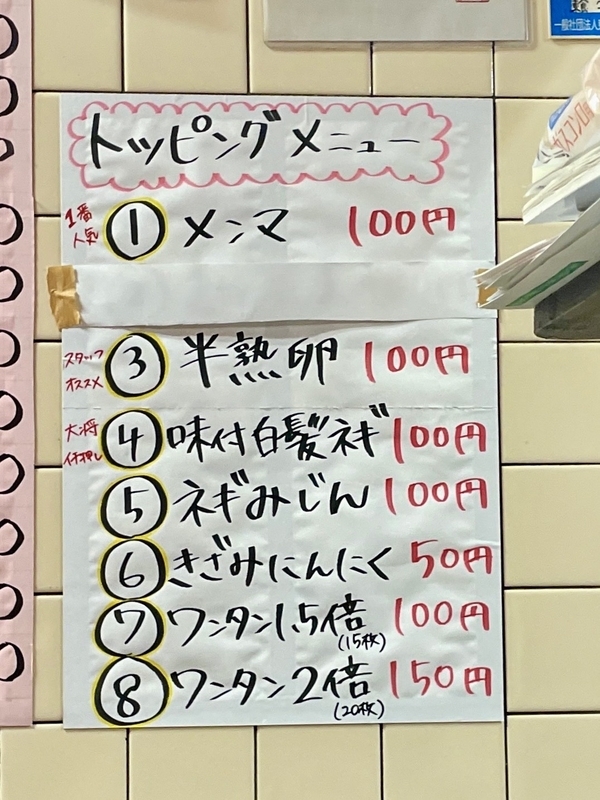 一般社団法人
トッピングメニュー
1番人気 ① メンマ 100円
スタッフオススメ ③ 半熟卵 100円
大将イチ押し ④ 味付白髪ネギ 100円
⑤ ネギみじん 100円
⑥ きざみにんにく 50円
⑦ ワンタン1.5倍 100円
(15枚)
⑧ ワンタン2倍 150円
(20枚)